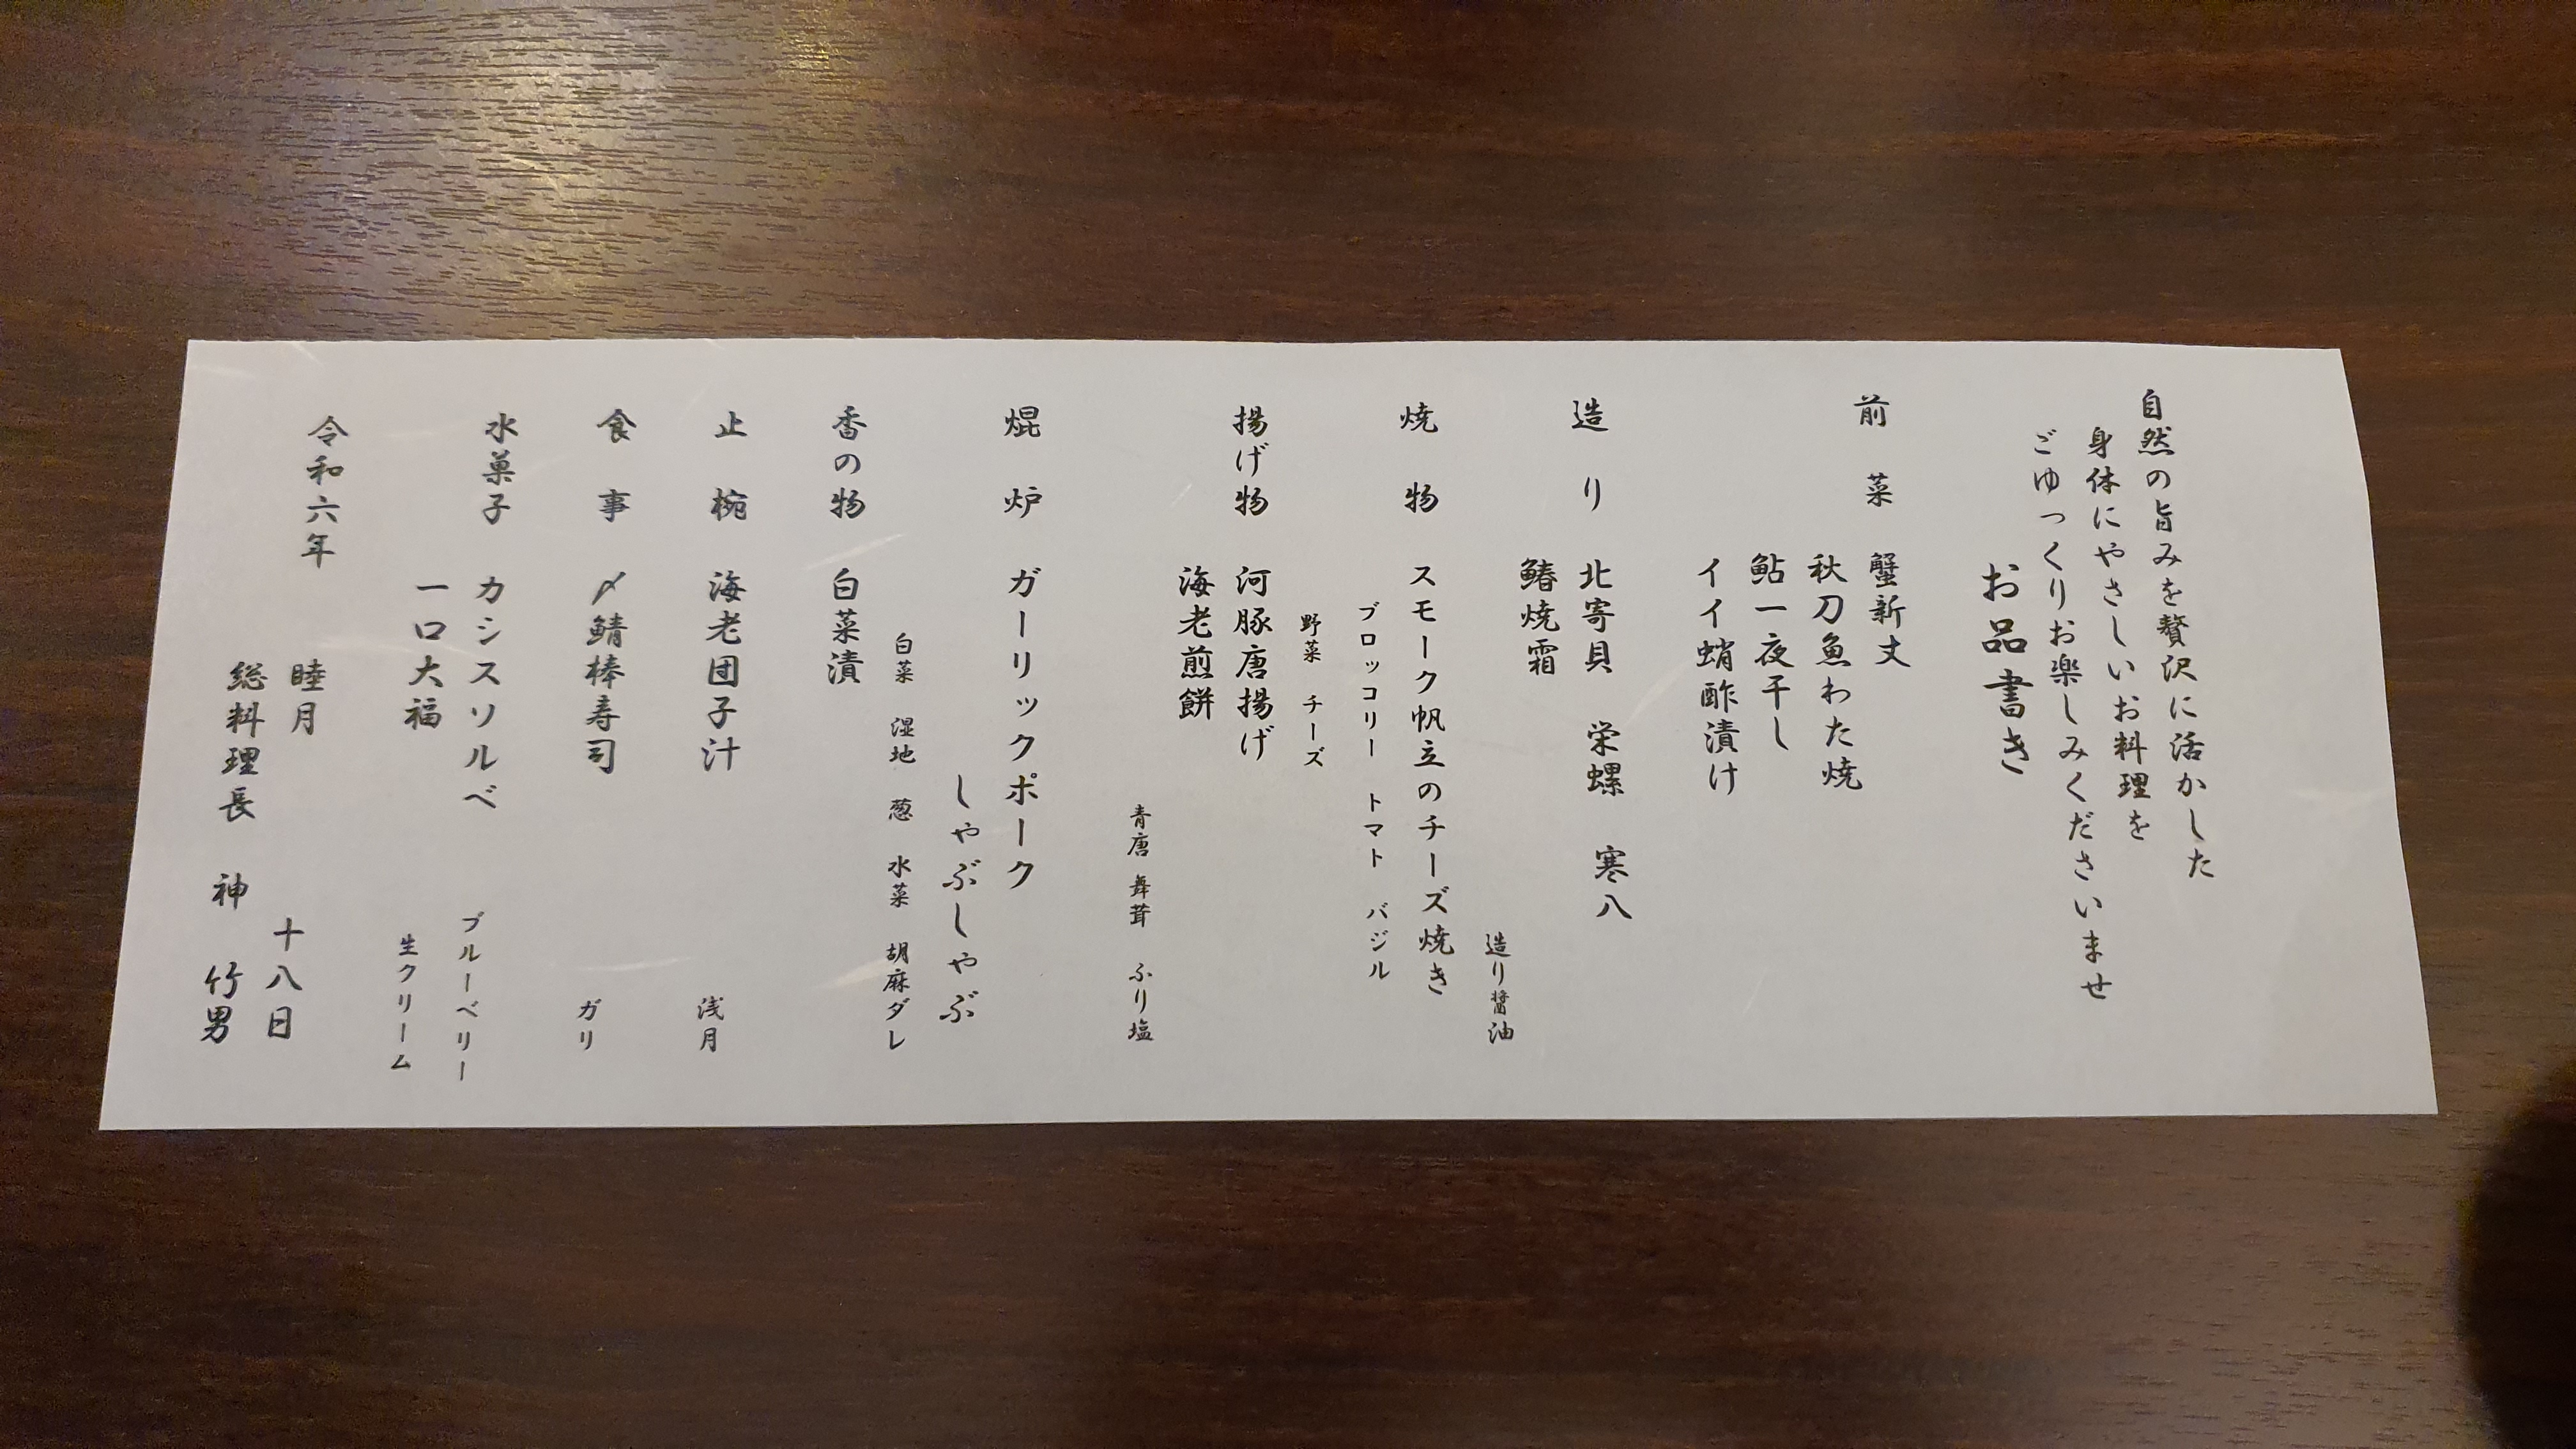 自然の旨みを贅沢に活かした
身体にやさしいお料理を
ごゆっくりお楽しみくださいませ
お品書き
前菜 蟹新丈
秋刀魚わた焼
鮎一夜干し
イイ蛸酢漬け
造り 北寄貝 栄螺 寒八
鰆焼霜
造り醤油
焼物 スモーク帆立のチーズ焼き
ブロッコリー トマト バジル
野菜 チーズ
揚げ物 河豚唐揚げ
海老煎餅
青唐 舞茸 ふり塩
焜炉 ガーリックポーク
しゃぶしゃぶ
白菜 湿地 葱 水菜 胡麻ダレ
香の物 白菜漬
止椀 海老団子汁 浅月
食事 〆鯖棒寿司 ガリ
水菓子 カシスソルベ ブルーベリー
一口大福 生クリーム
令和六年
睦月 十八日
総料理長 神 竹男